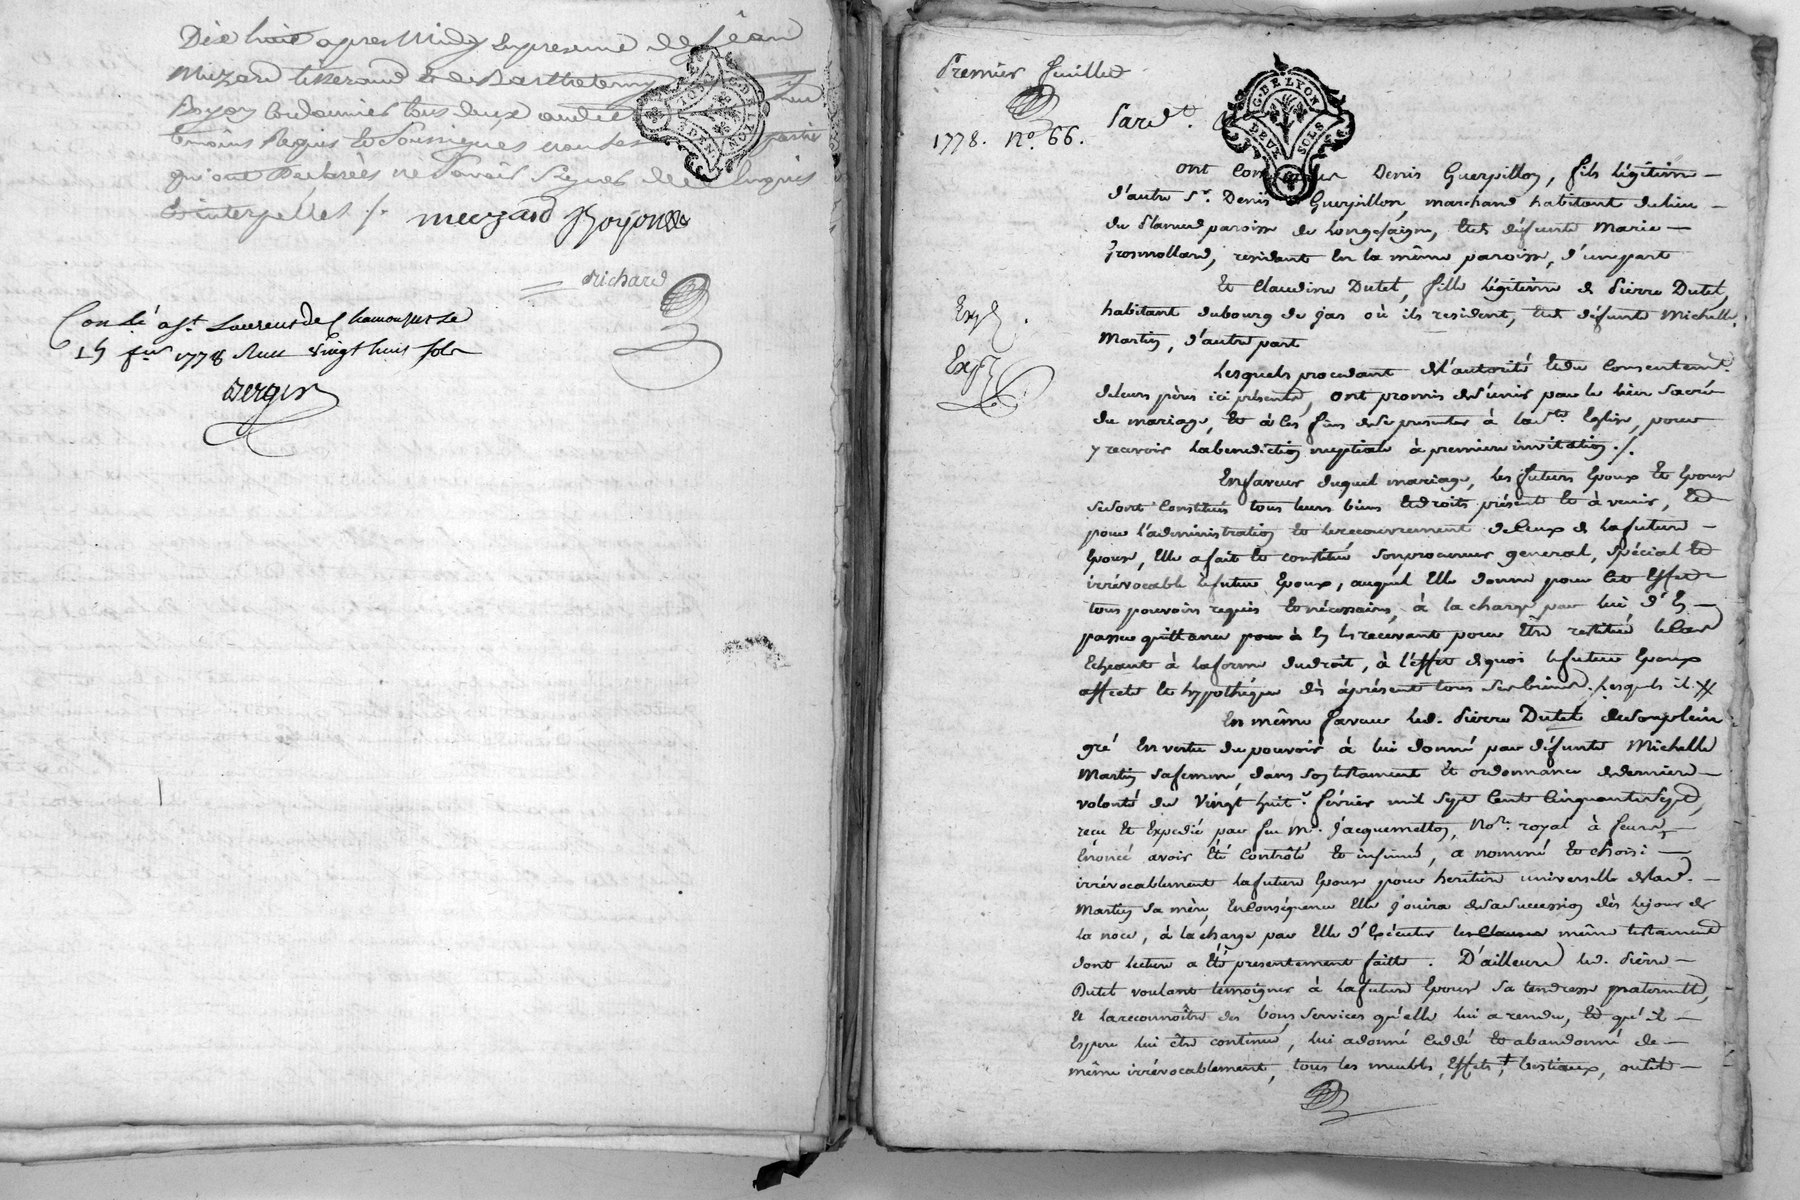 Dix huit apres Midy En presence de Jean
Muzard tisserand et de Barthelemy
Boyon Cordonnier tous deux audit
temoins Requis et Soussignes non les parties
qui ont declarées ne Savoir Signer de ce Enquis
et interpellés /.
muzard Boyon
Richard
Conlé a St Laurens de Chamousset le
15 fer 1778 Reçu vingt huit sols
Bergier
G. DE LYON
DEUX SOLS
Premier feuillet
1778. No. 66.
Pard.t
G. DE LYON
DEUX SOLS
ont comparu Denis Guerpillon, fils légitime
d'autre Sr. Denis Guerpillon, marchand habitant du lieu
du paroisse de Longesaigne, et de défunte Marie
Grosmollard, résidant en la même paroisse, d'une part
Et Claudine Dutel, fille légitime de Pierre Dutel,
habitant du bourg de Jas où ils resident, et de défunte Michelle
Martin, d'autre part
Exp.
Exp.
Lesquels procedant de l'autorité et du Consentemt.
de leurs pères ici présents, ont promis de s'unir par le lien Sacré
du mariage, et à ces fins de se presenter à la Ste. Eglise, pour
y recevoir la benediction nuptiale à premiere invitation ./.
En faveur duquel mariage, les futurs Epoux et Epouse
se sont Constitués tous leurs biens et droits présent et à venir, et
pour l'administration et le recouvrement de Ceux de la future
Epouse, Elle a fait et constitué son procureur general, spécial et
irrévocable le futur Epoux, auquel Elle donne pour Cet Effet
tous pouvoirs requis et nécessaires, à la charge par lui d'En
passer quittance pour à En les recevant pour Etre restitué le Cas
Echeant à la forme du droit, à l'effet de quoi le futur Epoux
affecte et hypothéque dès àprésent tous Ses biens. Lesquels il #
En même faveur led. Pierre Dutel de Son plein
gré En vertu du pouvoir à lui donné par défunte Michelle
Martin sa femme, dans Son testament et ordonnance de derniere
volonté du Vingt huit. février mil Sept Cent Cinquante Sept,
recu et Expedié par feu Me. Jacquemetton, Nore. royal à feurs,
Enoncé avoir Eté Contrôlé et insinué, a nommé et choisi
irrévocablement la future Epouse pour heritiere universelle de lad.
Martin Sa mère, En Conséquence Elle Jouira de Sa Succession dès le jour de
la noce, à la charge par Elle d'Exécuter les Clauses même testament
dont lecture a Eté presentement faite. D'ailleurs led. Pierre
Dutel voulant témoigner à la future Epouse Sa tendresse paternelle,
Et la reconnoître des bons Services qu'elle lui a rendu, et qu'il
Espere lui être continué, lui a donné Cedé et abandonné de
même irrévocablement, tous les meubles, Effets, + bestiaux, outils